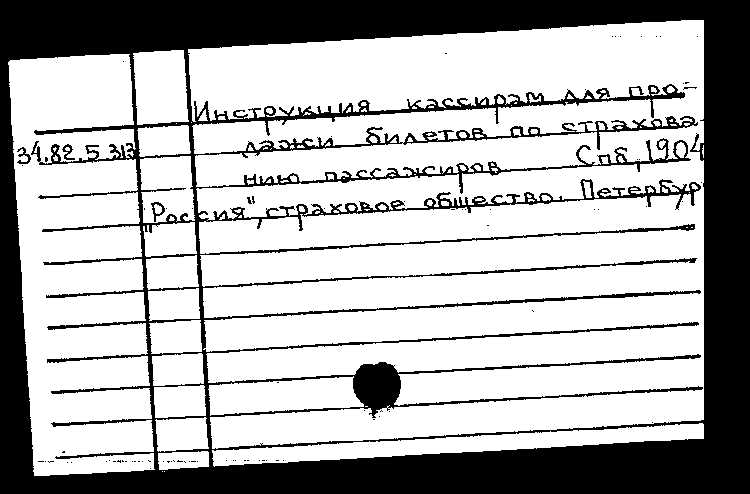 Инструкция кассирам для про-
34.82.5.313 дажи билетов по страхова
нию пассажиров Спб, 1904
"Россия", страховое общество. Петербур